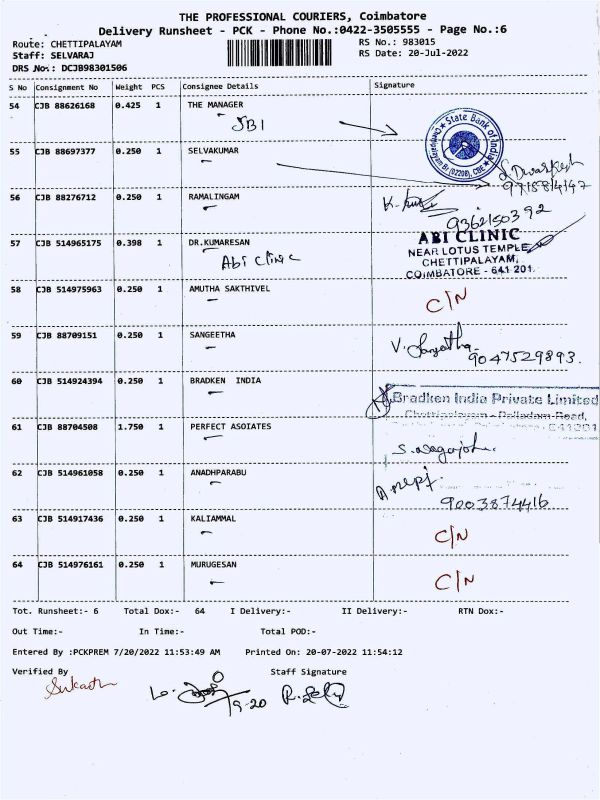 THE PROFESSIONAL COURIERS, Coimbatore
Delivery Runsheet - PCK - Phone No.:0422-3505555 - Page No.:6
Route: CHETTIPALAYAM RS No.: 983015
Staff: SELVARAJ RS Date: 20-Jul-2022
DRS No.: DCJB98301506
S No Consignment No Weight PCS Consignee Details Signature
54 CJB 88626168 0.425 1 THE MANAGER
SBI
State Bank of India
55 CJB 88697377 0.250 1 SELVAKUMAR
9715814147
56 CJB 88276712 0.250 1 RAMALINGAM
9362150392
57 CJB 514965175 0.398 1 DR.KUMARESAN
Abi Clinic
ABI CLINIC
NEAR LOTUS TEMPLE,
CHETTIPALAYAM,
COIMBATORE - 641 201.
58 CJB 514975963 0.250 1 AMUTHA SAKTHIVEL C/N
59 CJB 88709151 0.250 1 SANGEETHA V. Sangeetha
9047529893.
60 CJB 514924394 0.250 1 BRADKEN INDIA
Bradken India Private Limited
Chettipalayam - Palladam Road,
641201
61 CJB 88704508 1.750 1 PERFECT ASOIATES
62 CJB 514961058 0.250 1 ANADHPARABU
9003874416
63 CJB 514917436 0.250 1 KALIAMMAL C/N
64 CJB 514976161 0.250 1 MURUGESAN C/N
Tot. Runsheet:- 6 Total Dox:- 64 I Delivery:- II Delivery:- RTN Dox:-
Out Time:- In Time:- Total POD:-
Entered By :PCKPREM 7/20/2022 11:53:49 AM Printed On: 20-07-2022 11:54:12
Verified By Staff Signature